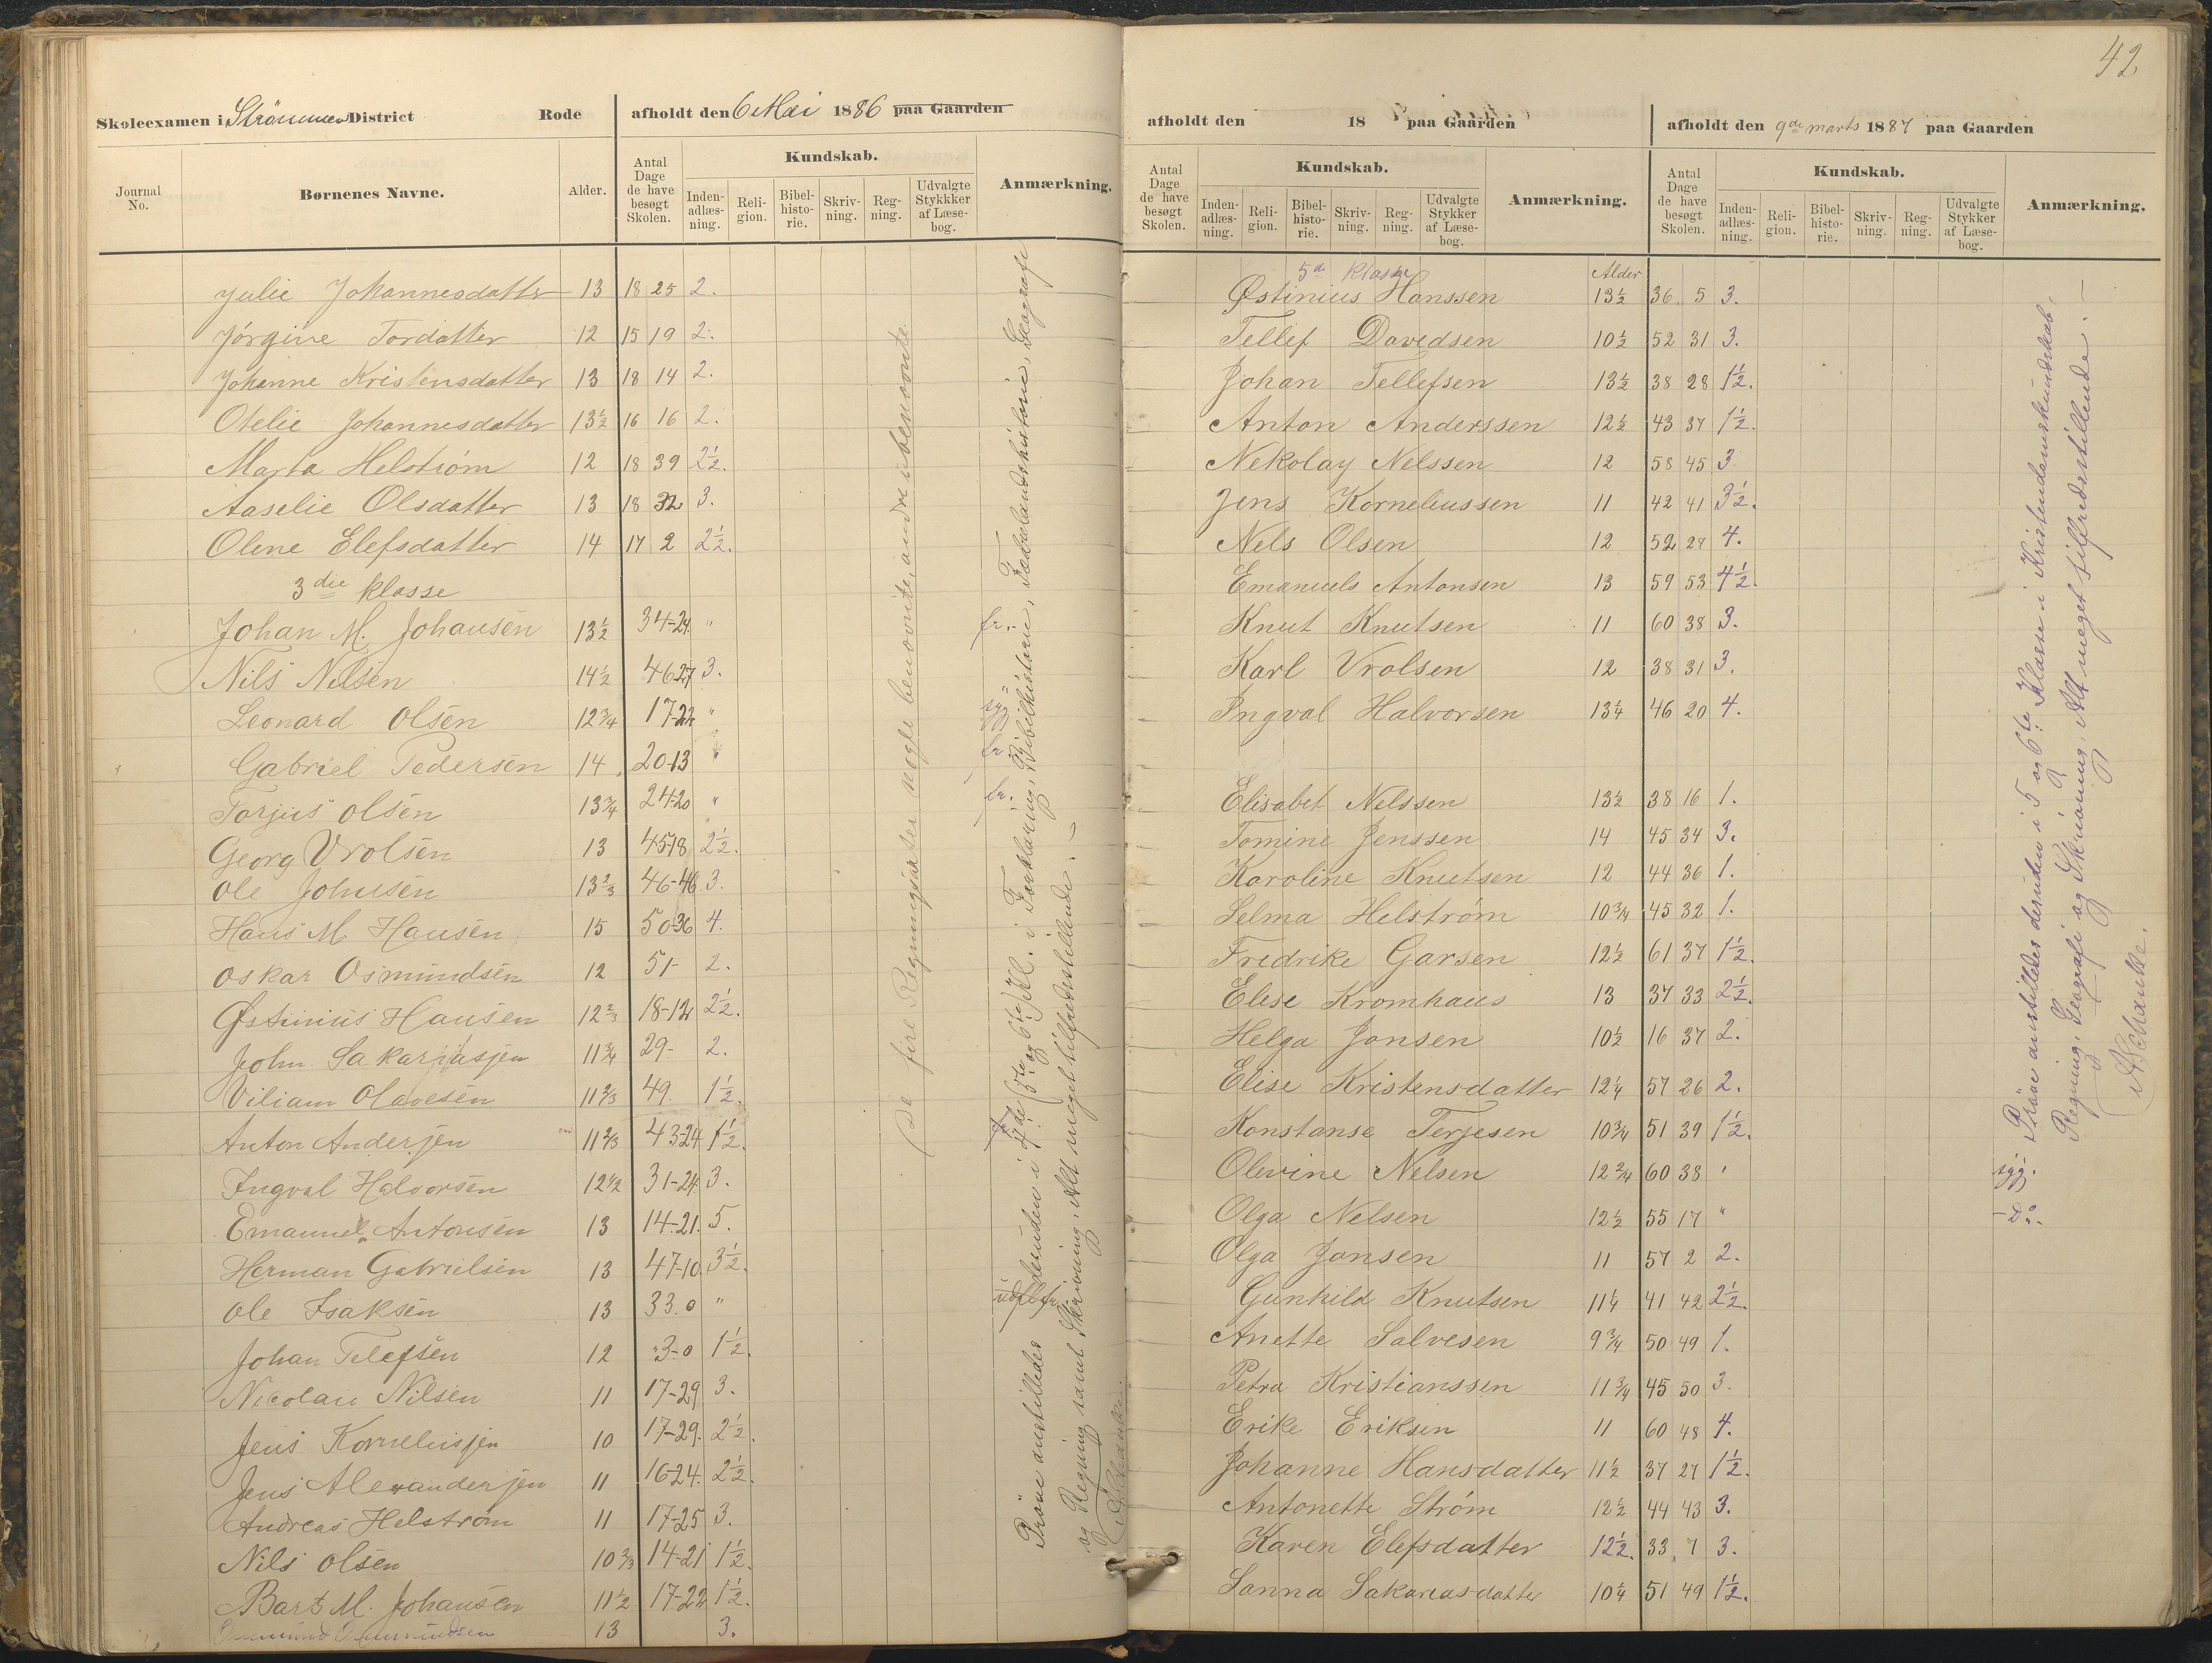 42
Skoleexamen i Strømmen District Rode afholdt den 6 Mai 1886 paa Gaarden
Journal No. Børnenes Navne. Alder. Antal Dage de have besøgt Skolen. Kundskab. Anmærkning.
Inden-adlæs-ning. Reli-gion. Bibel-histo-rie. Skriv-ning. Reg-ning. Udvalgte Stykkker af Læse-bog.
Julie Johannesdatter 13 18 25 2.
Jörgine Tordatter 12 15 19 2.
Johanne Kristensdatter 13 18 14 2.
Otelie Johannesdatter 13½ 16 16 2.
Marta Helström 12 18 39 2½.
Aaselie Olsdatter 13 18 32 3.
Olene Elefsdatter 14 17 2 2½.
3die klasse
Johan M. Johansen 13½ 34-24. " fr.
Nils Nilsen 14½ 46 27 3.
Leonard Olsen 12¾ 17-22 " syg
Gabriel Pedersen 14 20-13 " fr
Torjus Olsen 13¾ 24-20 " fr.
Georg Vrolsen 13 45-18 2½.
Ole Johnsen 13⅔ 46-46 3.
Hans M Hansen 15 50-36 4.
Oskar Osmundsen 12 51- 2.
Østinius Hansen 12⅔ 18-12 2½.
John Sakariasjen 11¾ 29- 2.
Viliam Olavesen 11⅔ 49. 1½.
Anton Anderjen 11⅔ 43-24 1½.
Ingval Halvorsen 12½ 31-24. 3.
Emanuel Antonsen 13 14-21. 5.
Herman Gabrielsen 13 47-10. 3½.
Ole Isaksen 13 33. 0 "
Johan Telefsen 12 3-0 1½.
Nicolai Nilsen 11 17-29 3.
Jens Korneliusjen 10 17-29. 2½.
Jens Alexanderjen 11 16-24. 2½.
Andreas Helstrom 11 17-25 3.
Nils Olsen 10⅔ 14-21 1½.
Bart M. Johansen 11½ 17-22 1½.
13 3.
De fire Regningsarter nogle benævnte, andre ubenævnte.
Pröve anstilledes desuden i 4de (5te og 6te) Kl. i Forklaring, Bibelhistorie, Fædrelandshistorie, Geografi
og Regning samt Skrivning, Alt meget tilfredsstillende. –
ASchanke.
afholdt den 18 paa Gaarden afholdt den 9de marts 1887 paa Gaarden
Antal Dage de have besøgt Skolen. Kundskab. Anmærkning. Antal Dage de have besøgt Skolen. Kundskab. Anmærkning.
Inden-adlæs-ning. Reli-gion. Bibel-histo-rie. Skriv-ning. Reg-ning. Udvalgte Stykker af Læse-bog. Inden-adlæs-ning. Reli-gion. Bibel-histo-rie. Skriv-ning. Reg-ning. Udvalgte Stykker af Læse-bog.
5de Klasse Alder
Østinius Hanssen 13½ 36. 5 3.
Tellef Davedsen 10½ 52 31 3.
Johan Tellefsen 13½ 38 28 1½.
Anton Anderssen 12½ 43 37 1½.
Nekolay Nelssen 12 58 45 3
Jens Korneliussen 11 42 41 3½.
Nels Olsen 12 52 27 4.
Emanuels Antonsen 13 59 53 4½.
Knut Knutsen 11 60 38 3.
Karl Vrolsen 12 38 31 3.
Ingval Halvorsen 13¼ 46 20 4.
Elisabet Nelssen 13½ 38 16 1.
Tomine Jenssen 14 45 34 3.
Karoline Knutsen 12 44 36 1.
Selma Helström 10¾ 45 32 1.
Fredrike Garsen 12½ 61 37 1½.
Elise Kromhaus 13 37 33 2½.
Helga Jonsen 10½ 16 37 2.
Elise Kristensdatter 12¼ 57 26 2.
Konstanse Terjesen 10¾ 51 39 1½.
Olevine Nelsen 12¾ 60 38 " syg.
Olga Nelsen 12½ 55 17 " - Do.
Olga Jonsen 11 57 2 2.
Gunhild Knutsen 11¼ 41 42 2½.
Anette Salvesen 9¾ 50 49 1.
Petra Kristianssen 11¾ 45 50 3.
Erike Eriksen 11 60 48 4.
Johanne Hansdatter 11½ 37 27 1½.
Antonette Ström 12½ 44 43 3.
Karen Elefsdatter 12½. 33, 7 3.
Sanna Sakariasdatter 10¼ 51 49 1½.
Pröve anstilledes desuden i 5 og 6te Klasse i Kristendomskundskab,
Regning, Geografi og Skrivning. Alt meget tilfredsstillende. –
ASchanke.